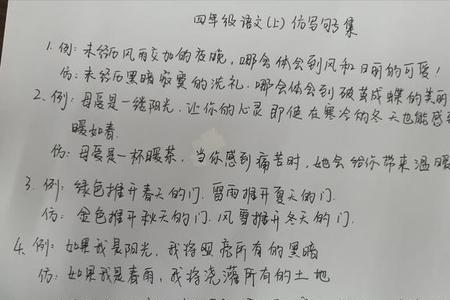 四年级语文(上)仿写句子集
1. 例: 未经历风雨交加的夜晚,哪会体会到风和日丽的可爱!
仿: 未经历黑暗寂寞的洗礼,哪会体会到破茧成蝶的美丽
2. 例: 母爱是一缕阳光,让你的心灵即使在寒冷的冬天也能感
暖如春.
仿: 母爱是一杯暖茶,当你感到痛苦时,她会给你带来温暖
3. 例: 绿色推开春天的门.雷雨推开夏天的门.
仿: 金色推开秋天的门.风雪推开冬天的门.
4. 例: 如果我是阳光,我将照亮所有的黑暗
仿: 如果我是春雨,我将浇灌所有的土地